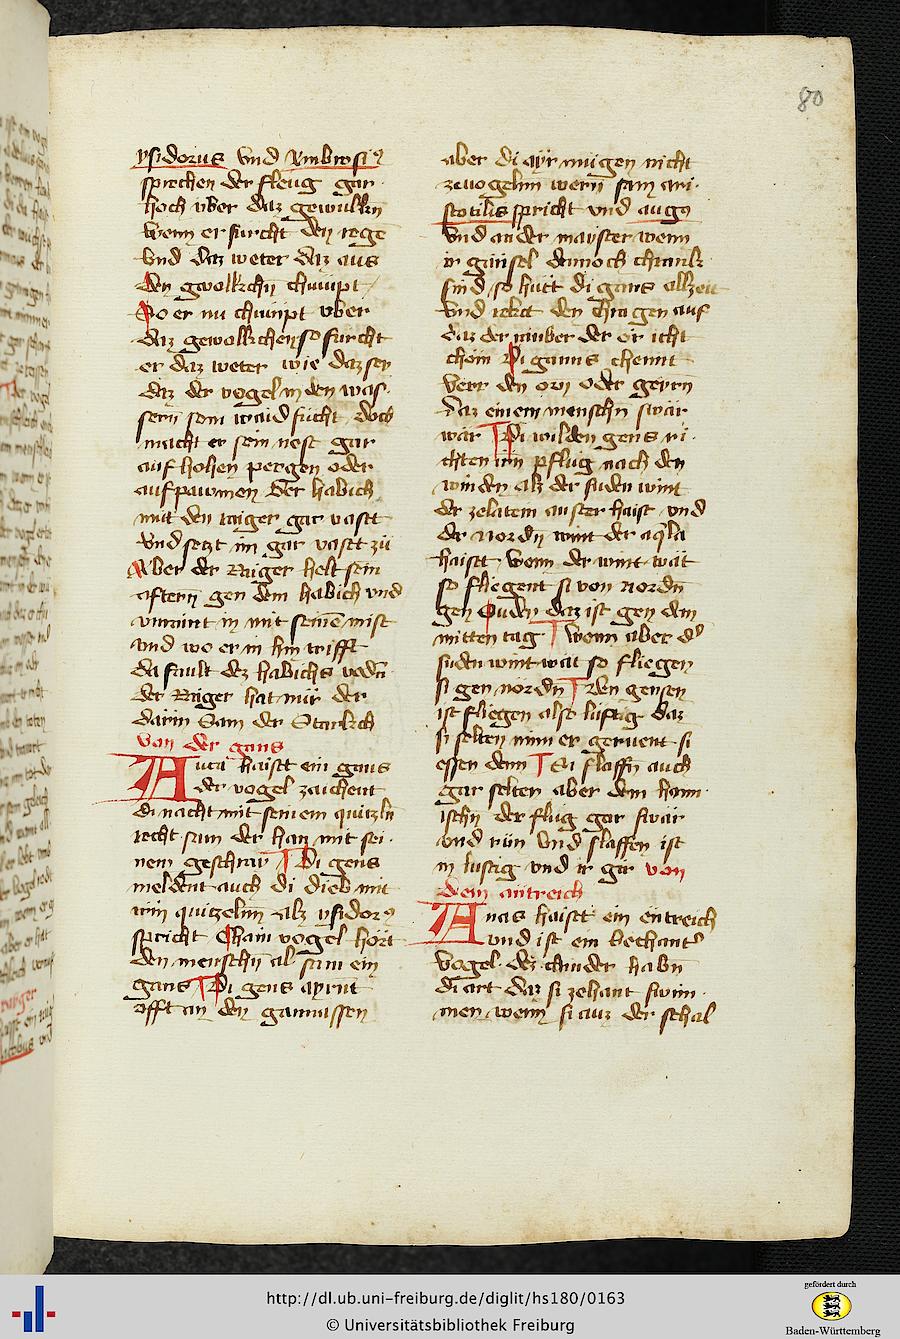 80
ysidorus vnd Ambrosi9
sprechen der fleug gar
hoch vber daz gewulkn
wenn er furcht den rege
vnd daz weter daz aus
den gwolkchn chumpt
So er nu chumpt vber
daz gewolkchen so furcht
er daz weter wie daz sey
daz der vogel in den was
sern sein waid sucht doch
macht er sein nest gar
auf hohen pergen oder
auf pawmen Der habich
mut den raiger gar vastt
vnd setzt im gar vastt zu
Aber der Raiger helt sein
aftern gen dem habich vnd
vnraint in mit seinē mist
vnd wo er in hin trifft
da fault dez habichs vedn̄
der Raiger hat nür der
darm Sam der Starkch
von der gans
Auca haistt ein gans
der vogel zaichent
di nacht mit seinem quitzln̄
recht sam der han mit sei
nem geschray Di gens
meldent auch di dieb mit
irm quitzelnn alz ysidor9
spricht Chain vogel hört
den menschn al sam ein
gans Di gens ayrnt
offt an den gannassen
aber di ayr mügen nicht
ze vogelnn wern sam ari
stotilis spricht vnd aug9
vnd ander mayster wenn
ir gänsel dennoch chrankk
sind so hütt di gans allzeit
vnd rekct den chragen auf
daz der rauber der ör icht
chöm Di ganns chennt
verr den orn oder geyrn
daz einem menschn swär
wär Di wilden gens ri
chten irn pflug nach den
winden alz der suden wint
der ze latein auster haist vnd
der nordn wint der aq'la
haistt wenn der wint wät
so fliegent si von nordn̄
gen Suden daz ist gen dem
mitten tag wenn aber d'
suden wint wät so fliegen
si gen nördn̄ den gensen
ist fliegen also lustig daz
si selten nimer geruent si
essen denn Si slaffn̄ auch
gar selten aber dem haim
ischn der flug gar swär
vnd rün vnd slaffen ist
in lustig vnd ir gir von
dem antreich
Anas haistt ein entreich
vnd ist ein bechant'
vogel dez chinder habn̄
di art daz si zehant swim
men wenn si auz der schal
http://dl.ub.uni-freiburg.de/diglit/hs180/0163
© Universitätsbibliothek Freiburg
gefördert durch
Baden-Württemberg